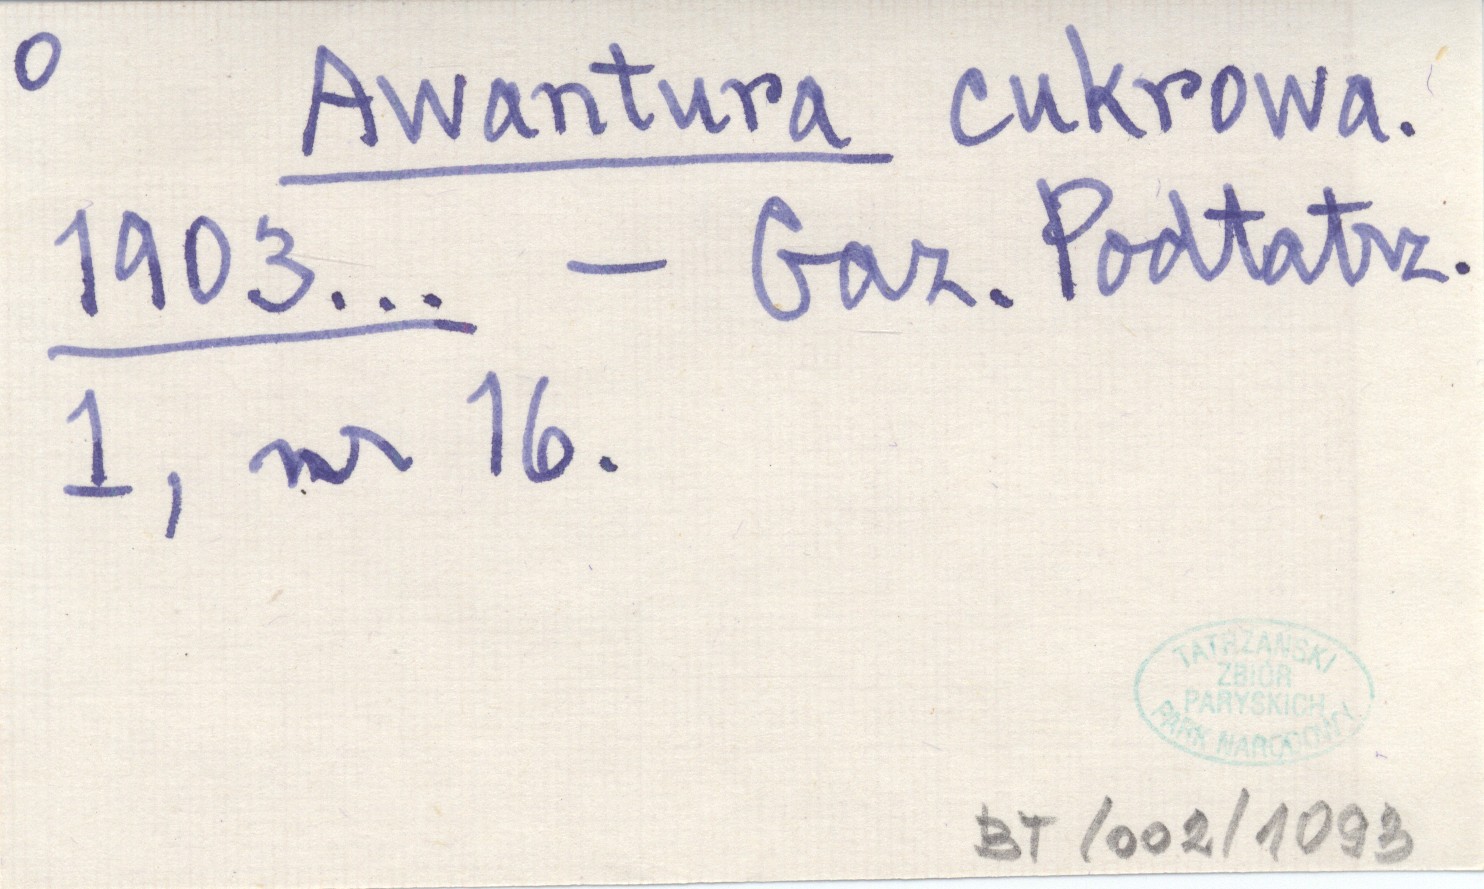 O Awantura cukrowa.
1903... – Gaz. Podtatrz.
1, nr 16.
TATRZAŃSKI
ZBIÓR
PARYSKICH
PARK NARODOWY
BT/002/1093